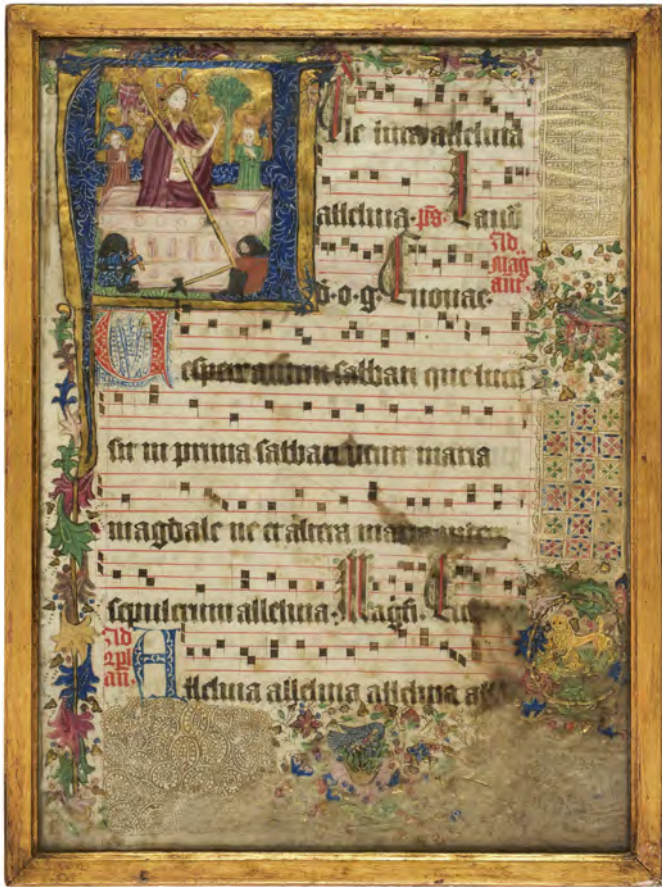 alleluia
alleluia. ps. Lau
Ad
Mag
ant.
d. o. g. Euouae.
Vespere autem sabbati que luces
sit in prima sabbati venit maria
magdale ne et altera maria
sepulcrum alleluia. Magn.
Ad
an.
Alleluia alleluia alleluia